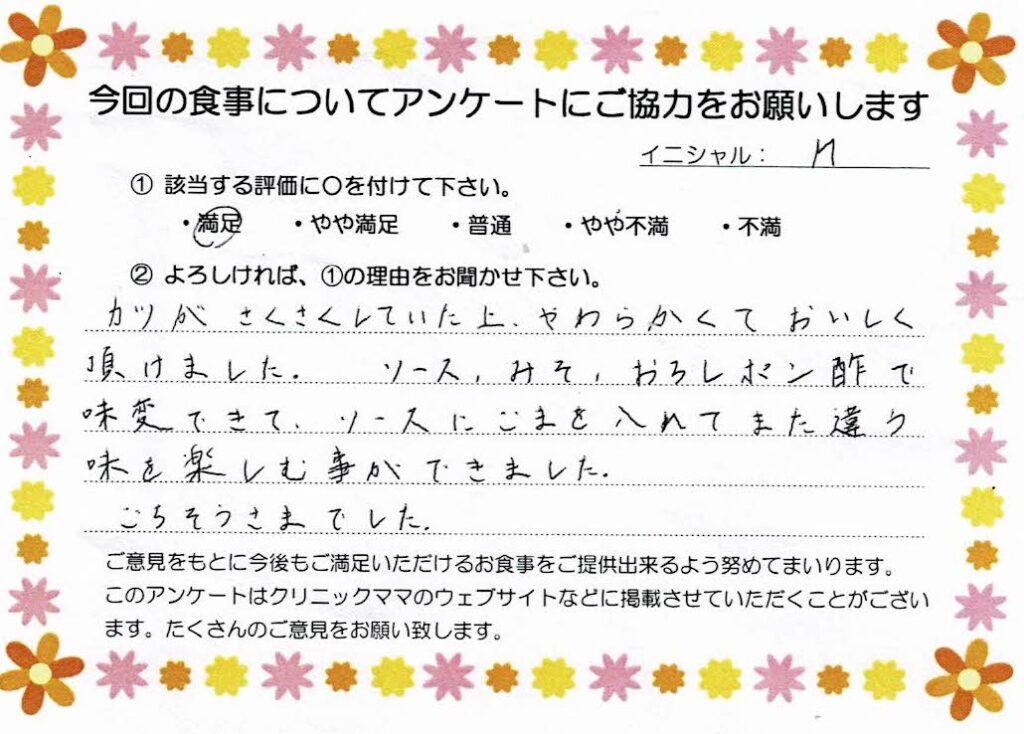 今回の食事についてアンケートにご協力をお願いします
イニシャル： M
① 該当する評価に〇を付けて下さい。
・満足 ・やや満足 ・普通 ・やや不満 ・不満
② よろしければ、①の理由をお聞かせ下さい。
カツが さくさくしていた上、やわらかくて おいしく
頂けました。 ソース, みそ, おろしポン酢で
味変できて、ソースにごまを入れてまた違う
味を楽しむ事ができました。
ごちそうさまでした。
ご意見をもとに今後もご満足いただけるお食事をご提供出来るよう努めてまいります。
このアンケートはクリニックママのウェブサイトなどに掲載させていただくことがござい
ます。たくさんのご意見をお願い致します。